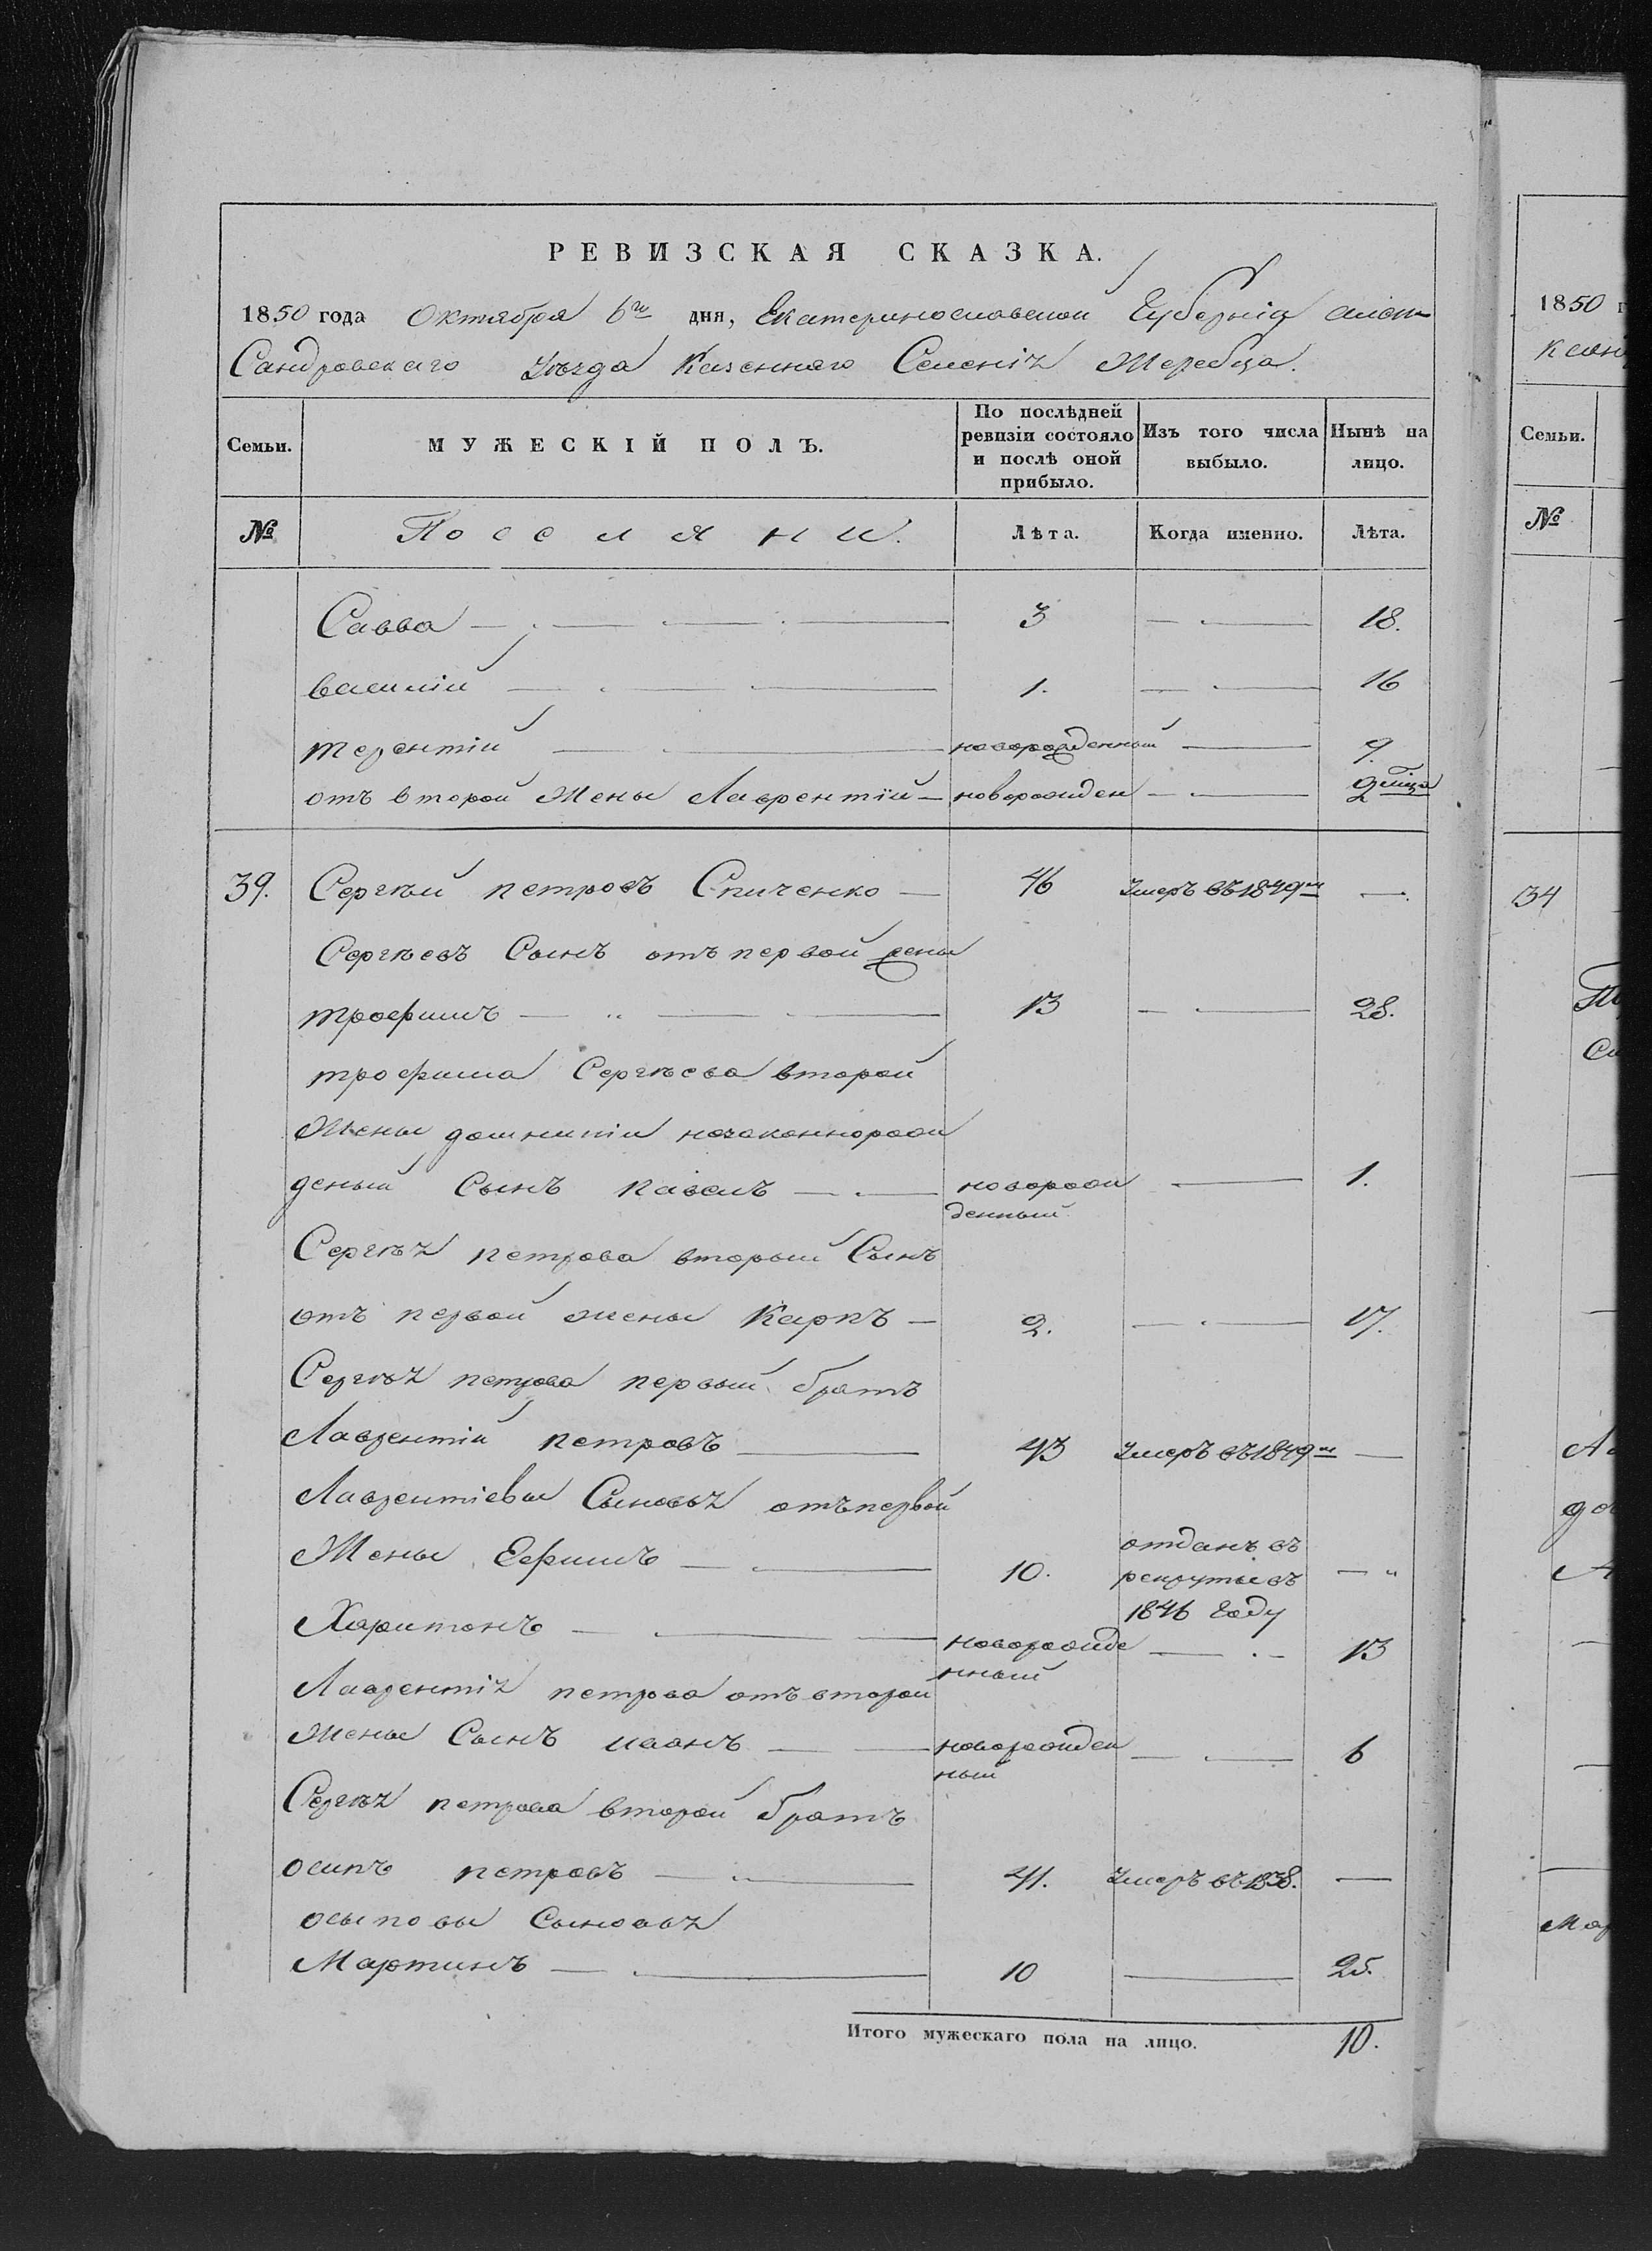 РЕВИЗСКАЯ СКАЗКА.
1850 года Октября 6го дня, Екатеринославской Губерніи алек
Сандровскаго уѣзда Казеннаго Селенія Жеребца.
Семьи. МУЖЕСКІЙ ПОЛЪ. По послѣдней ревизіи состояло и послѣ оной прибыло. Изъ того числа выбыло. Нынѣ на лицо.
№ Поселяни. Лѣта. Когда именно. Лѣта.
Савва 3 18.
василій 1. 16
терентій новорожденный 9.
отъ второй Жены Лаврентій новорожден 2 мѣца
39. Сергѣй петровъ Спиченко 46 умеръ въ 1849м
Сергѣевъ Сынъ отъ первой жены
трофимъ 13 28.
трофима Сергѣева второй
Жены незаконнорож
деный Сынъ павелъ новорож 1.
денный
Сергѣя петрова вторый Сынъ
отъ первой жены Карпъ 2. 17.
Сергѣя петрова первый братъ
Лаврентій петровъ 43 умеръ въ 1849м
Лаврентіевы Сыновья отъ первой
Жены Ефимъ 10. отданъ въ
рекруты въ
1846 Году
Харитонъ новорожде 13
нный
Лаврентія петрова отъ второй
Жены Сынъ иванъ новорожден 6
ный
Сергѣя петрова второй братъ
осипъ петровъ 41. умеръ въ 1838.
осыповы Сыновья
Мартинъ 10 25.
Итого мужескаго пола на лицо. 10.
1850 г
Семьи.
№
34